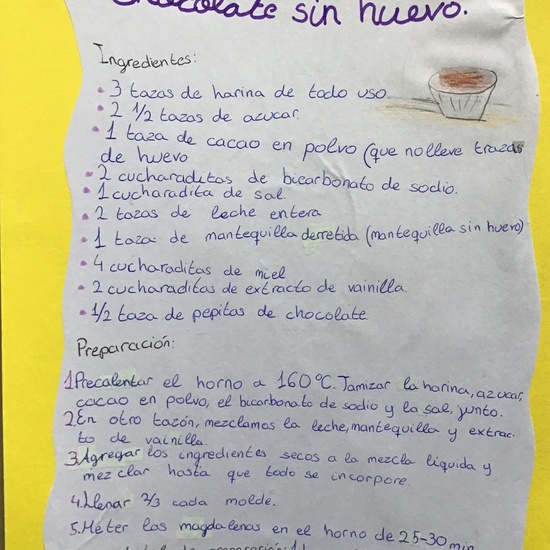 Chocolate sin huevo.
Ingredientes:
• 3 tazas de harina de todo uso
• 2 1/2 tazas de azucar.
• 1 taza de cacao en polvo (que no lleve trazas
de huevo
• 2 cucharaditas de bicarbonato de sodio.
• 1 cucharadita de sal.
• 2 tazas de leche entera
• 1 taza de mantequilla derretida (mantequilla sin huevo)
• 4 cucharaditas de miel
• 2 cucharaditas de extracto de vainilla.
• 1/2 taza de pepitas de chocolate
Preparación:
1 Precalentar el horno a 160°C. Tamizar la harina, azucar,
cacao en polvo, el bicarbonato de sodio y la sal, junto.
2 En otro tazón, mezclamos la leche, mantequilla y extrac-
to de vainilla.
3 Agregar los ingredientes secos a la mezcla líquida y
mezclar hasta que todo se incorpore.
4. Llenar 2/3 cada molde.
5. Meter las magdalenas en el horno de 25-30 min